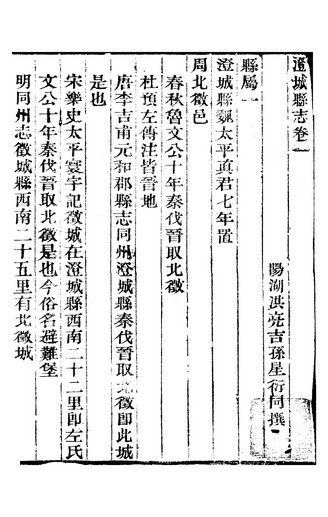 澄城縣志卷一
陽湖洪亮吉孫星衍同撰
縣屬一
澄城縣魏太平真君七年置
周北徵邑
春秋魯文公十年秦伐晉取北徵
杜預左傳注皆晉地
唐李吉甫元和郡縣志同州澄城縣秦伐晉取北徵卽此城
是也
宋樂史太平寰宇記徵城在澄城縣西南二十二里卽左氏
文公十年秦伐晉取北徵是也今俗名避難堡
明同州志徵城縣西南二十五里有北徵城